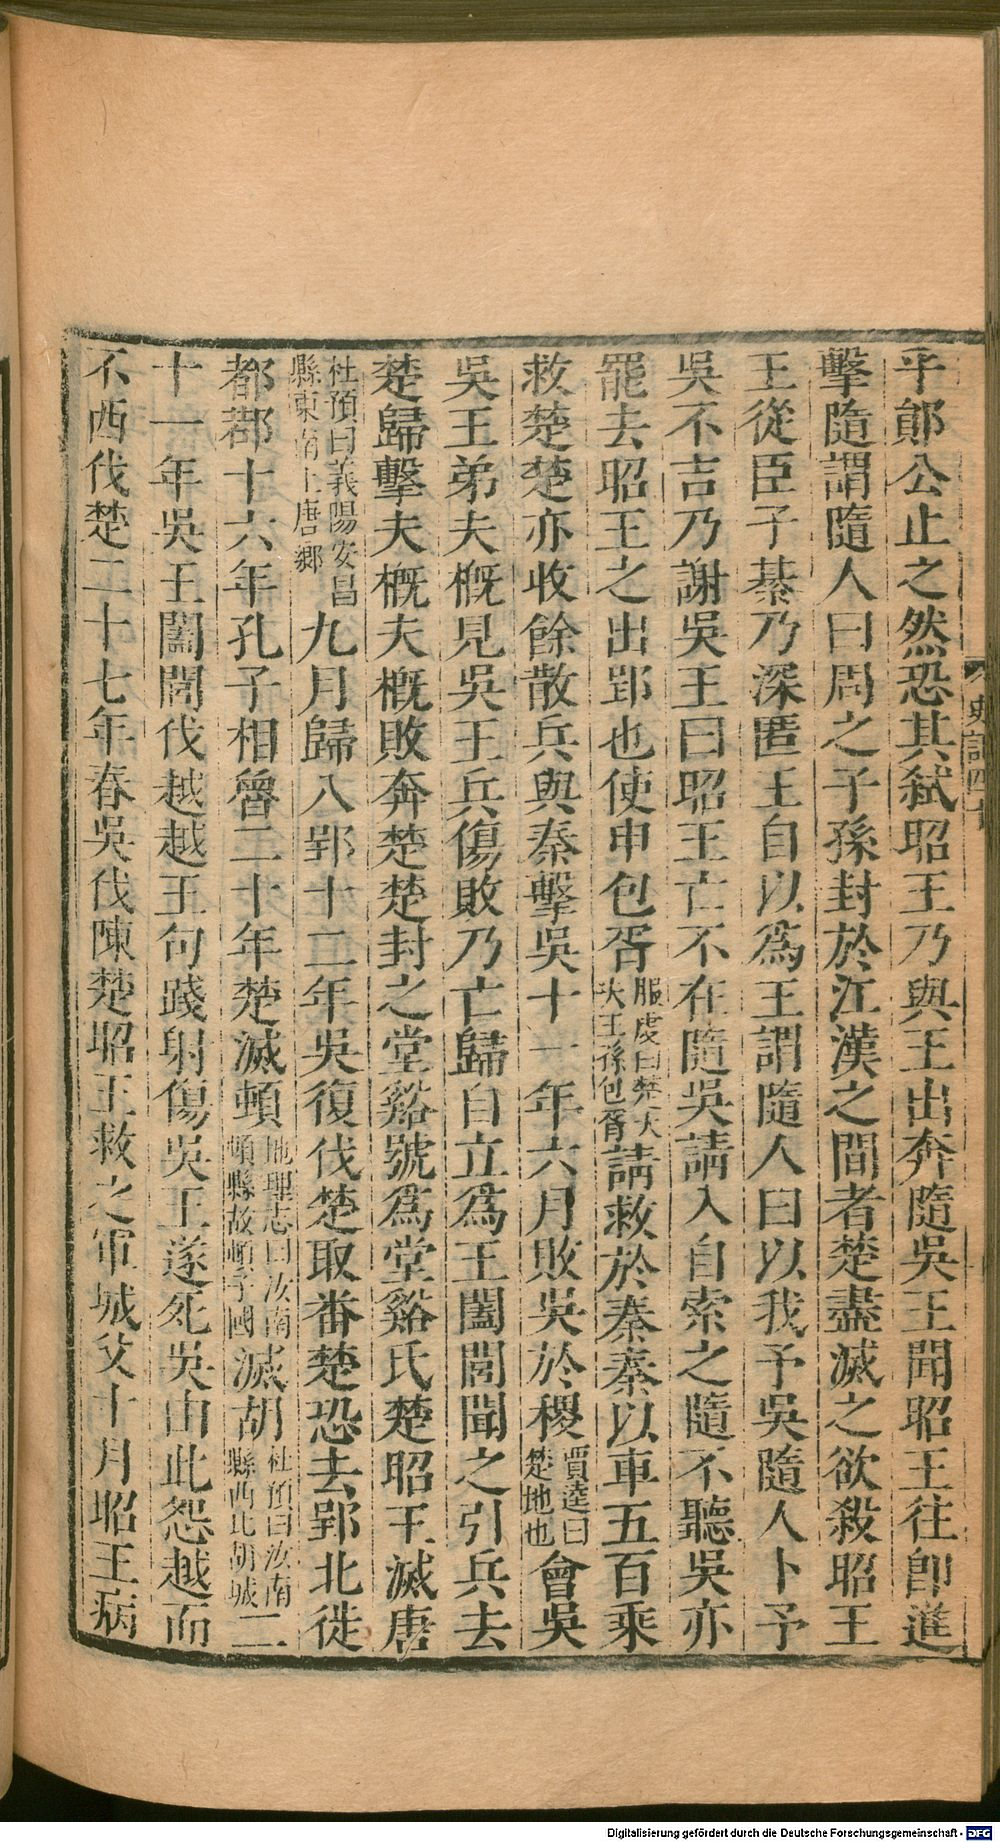 平鄖公止之然恐其弑昭王乃與王出奔隨吳王聞昭王往卽進
擊隨謂隨人曰周之子孫封於江漢之間者楚盡滅之欲殺昭王
王從臣子綦乃深匿王自以爲王謂隨人曰以我予吳隨人卜予
吳不吉乃謝吳王曰昭王亡不在隨吳請入自索之隨不聽吳亦
罷去昭王之出郢也使申包胥服虔曰楚大夫王孫包胥請救於秦秦以車五百乘
救楚楚亦收餘散兵與秦擊吳十一年六月敗吳於稷賈逵曰楚地也會吳
吳王弟夫概見吳王兵傷敗乃亡歸自立爲王闔閭聞之引兵去
楚歸擊夫概夫概敗奔楚楚封之堂谿號爲堂谿氏楚昭王滅唐
杜預曰義陽安昌縣東南上唐鄉九月歸入郢十二年吳復伐楚取番楚恐去郢北徙
都鄀十六年孔子相魯二十年楚滅頓地理志曰汝南頓縣故頓子國滅胡杜預曰汝南縣西北胡城二
十一年吳王闔閭伐越越王句踐射傷吳王遂死吳由此怨越而
不西伐楚二十七年春吳伐陳楚昭王救之軍城父十月昭王病
史記四十
Digitalisierung gefördert durch die Deutsche Forschungsgemeinschaft - DFG